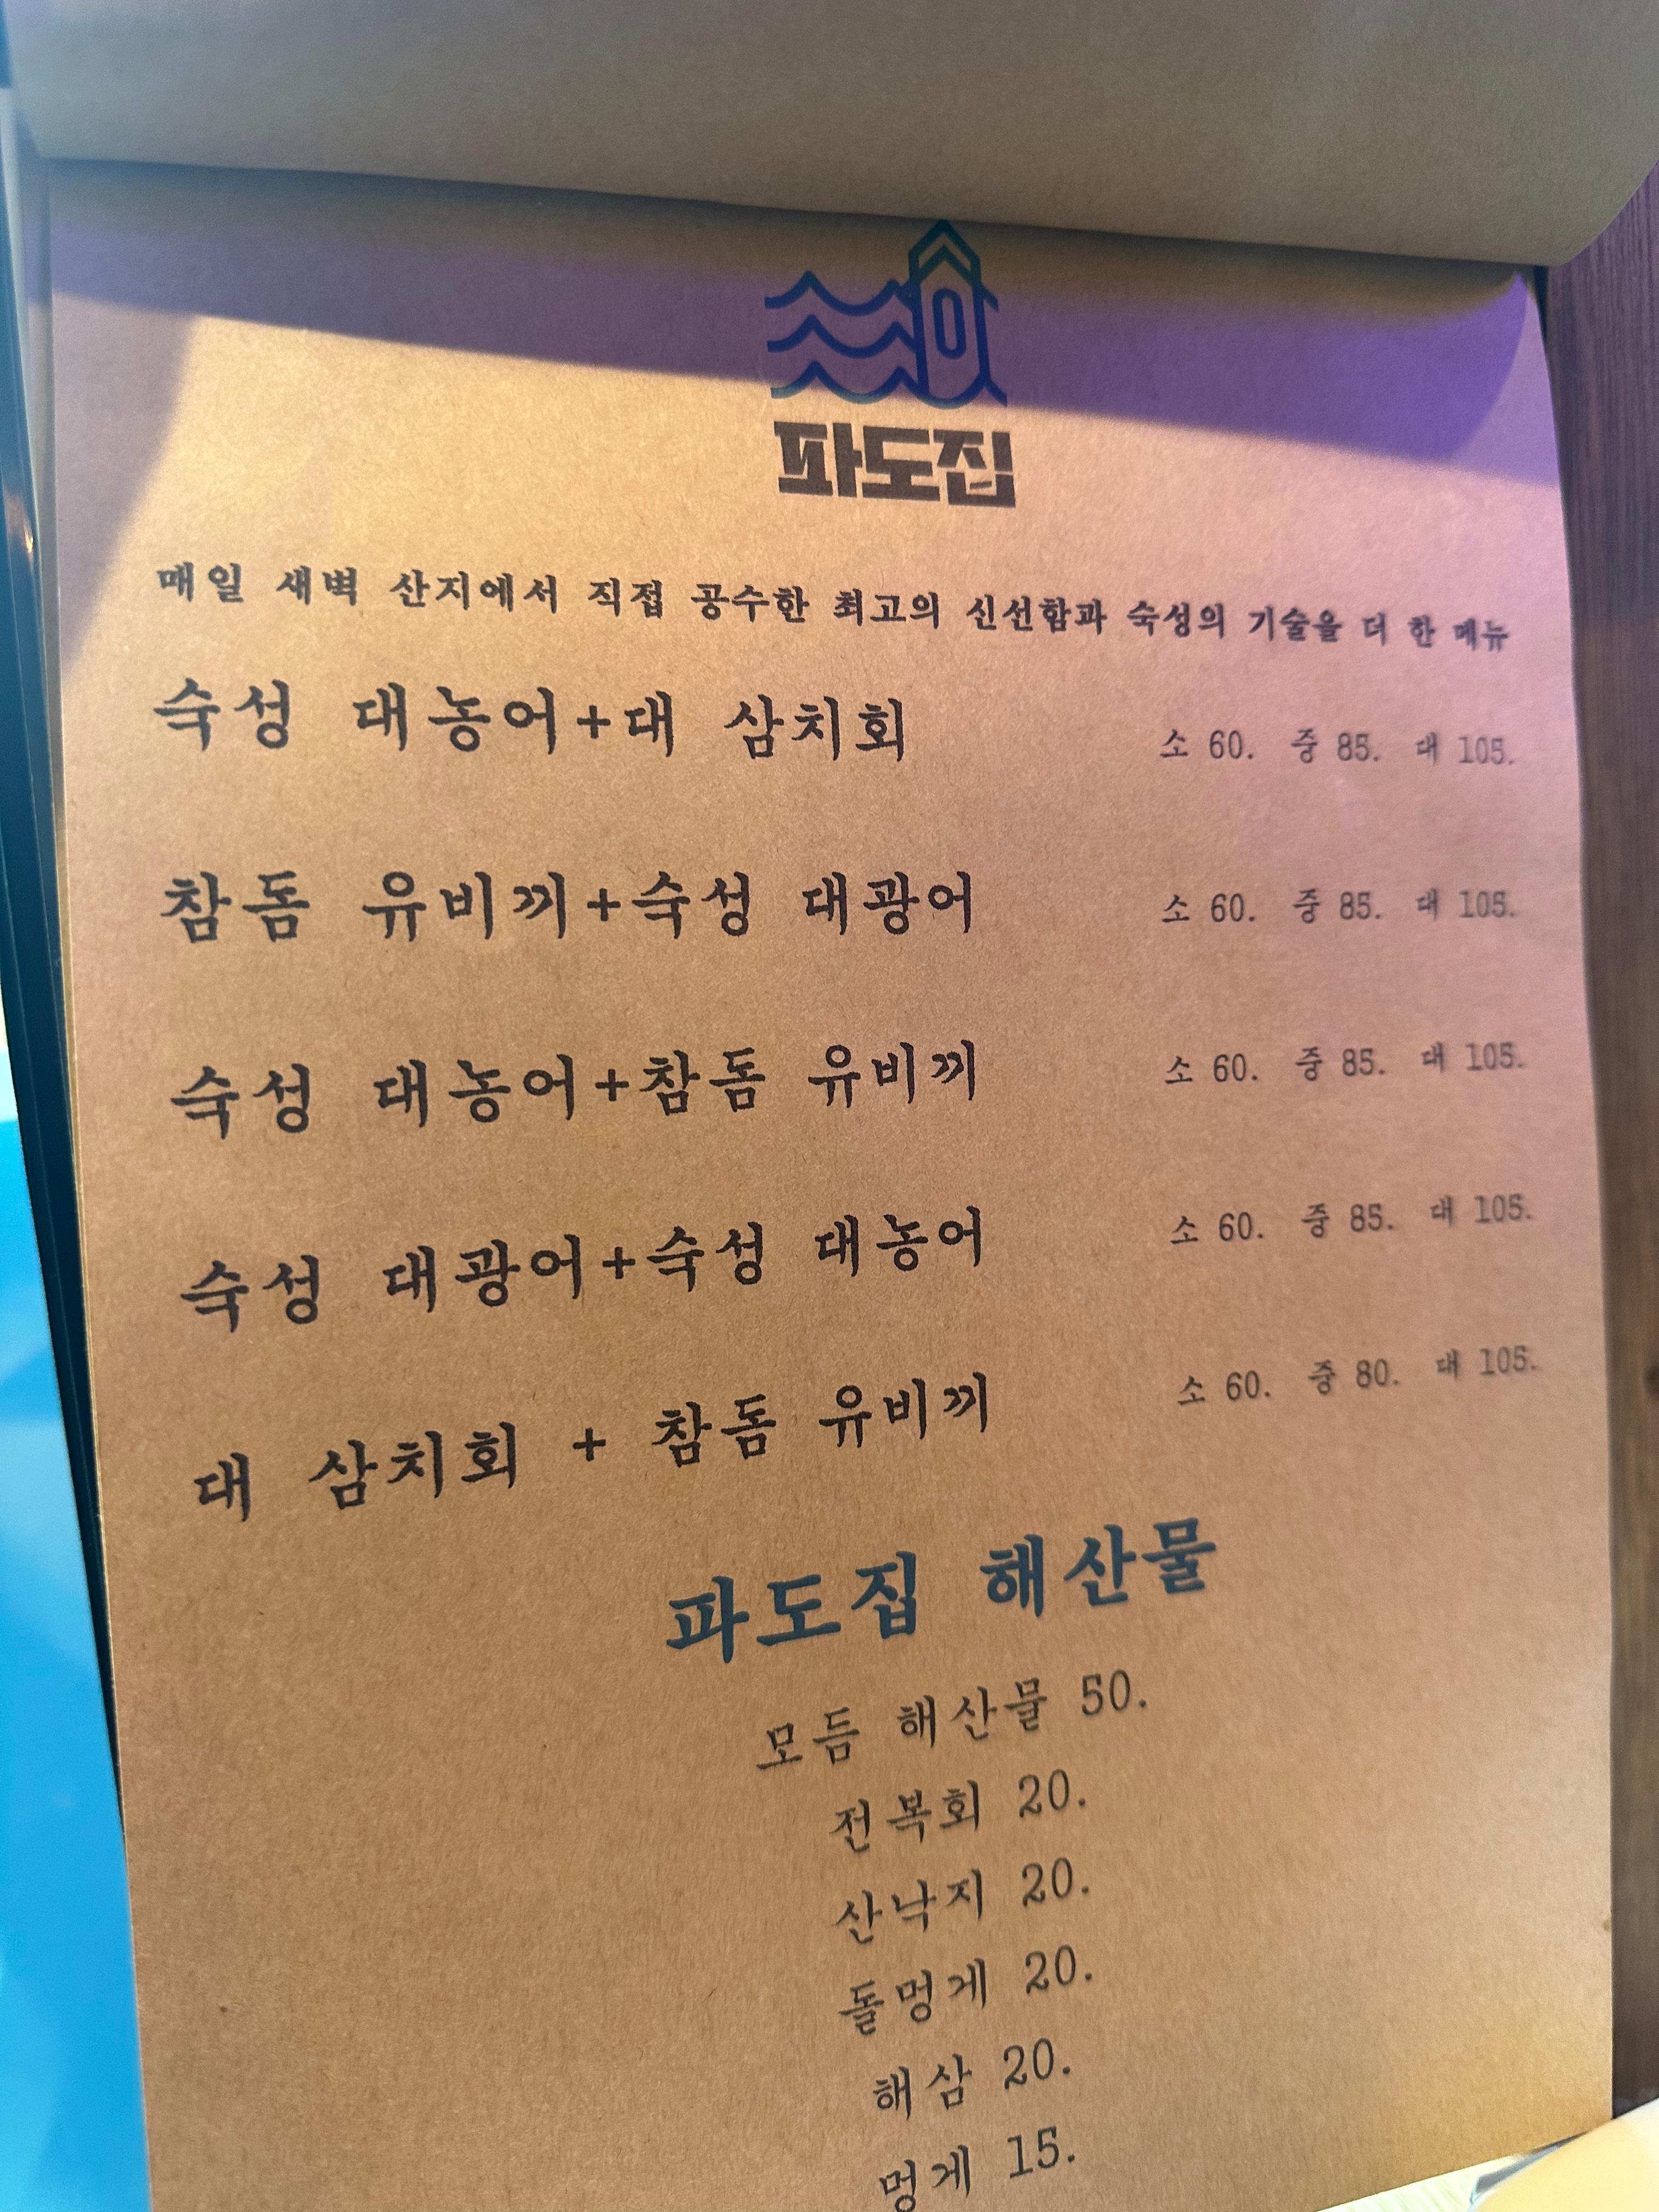 파도집
매일 새벽 산지에서 직접 공수한 최고의 신선함과 숙성의 기술을 더 한 메뉴
숙성 대농어+대 삼치회 소 60. 중 85. 대 105.
참돔 유비끼+숙성 대광어 소 60. 중 85. 대 105.
숙성 대농어+참돔 유비끼 소 60. 중 85. 대 105.
숙성 대광어+숙성 대농어 소 60. 중 85. 대 105.
대 삼치회 + 참돔 유비끼 소 60. 중 80. 대 105.
파도집 해산물
모듬 해산물 50.
전복회 20.
산낙지 20.
돌멍게 20.
해삼 20.
멍게 15.